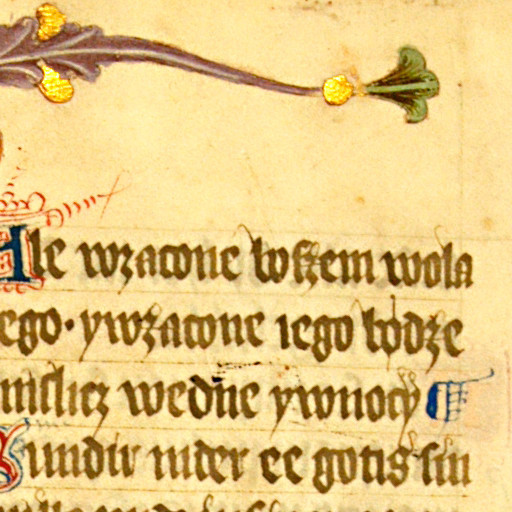 Ale wzacone boszem wola
ego · ywzacone iego bodze
mislicz wedne ywnocy ¶
Sundir inder ee gotis sin